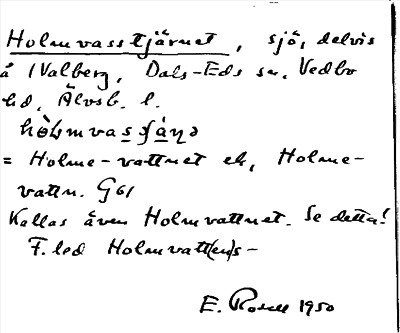 Holmvasstjärnet, sjö, delvis
å Valberg, Dals-Eds sn, Vedbo
hd, Älvsb. l.
= Holme-vattnet ek, Holme-
vattn. G 61
Kallas även Holmvattnet. Se detta!
F. led Holmvatt(en)s-
E. Rosell 1950